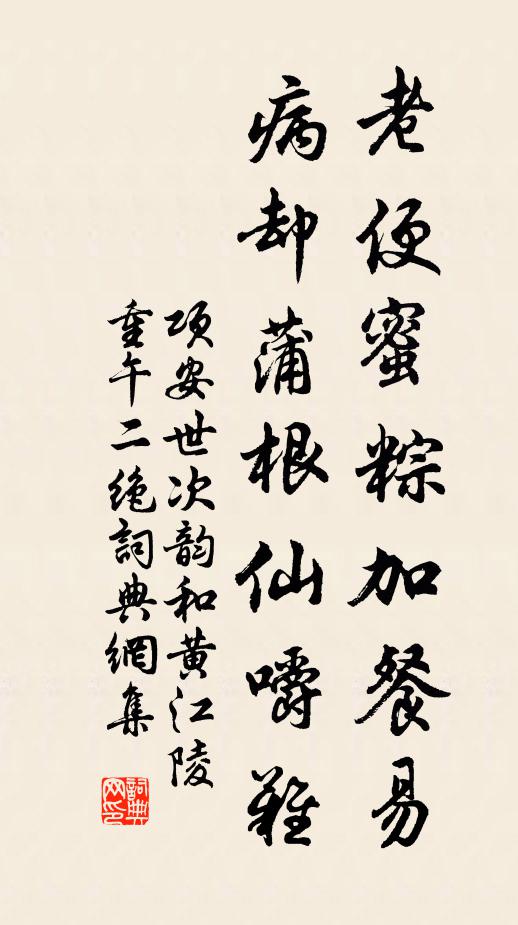 老便蜜粽加餐易
病却蒲根仙嚼難
项安世次韵和黄江陵
重午二絶詞典網集
詞典網印